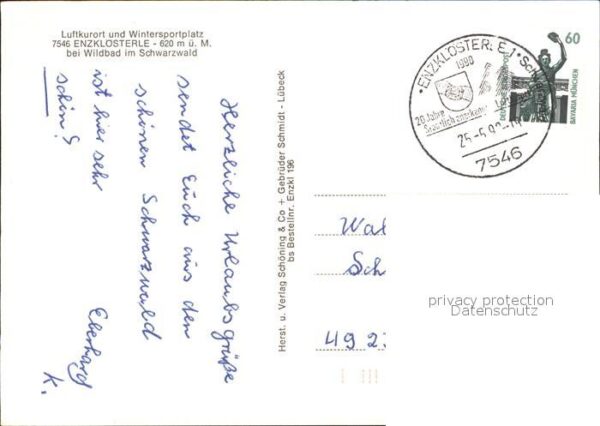 Luftkurort und Wintersportplatz
7546 ENZKLÖSTERLE - 620 m ü. M.
bei Wildbad im Schwarzwald
Herzliche Urlaubsgrüße
sendet Euch aus dem
schönen Schwarzwald
ist hier sehr
schön!
Eberhard
K.
Herst. u. Verlag Schöning & Co + Gebrüder Schmidt - Lübeck
bs Bestellnr. Enzkl 196
ENZKLÖSTERLE 1
1990
20 Jahre
25.-5.90-19
7546
60
DEUTSCHE BUNDESPOST
BAVARIA MÜNCHEN
Wal
Sch
492
privacy protection
Datenschutz